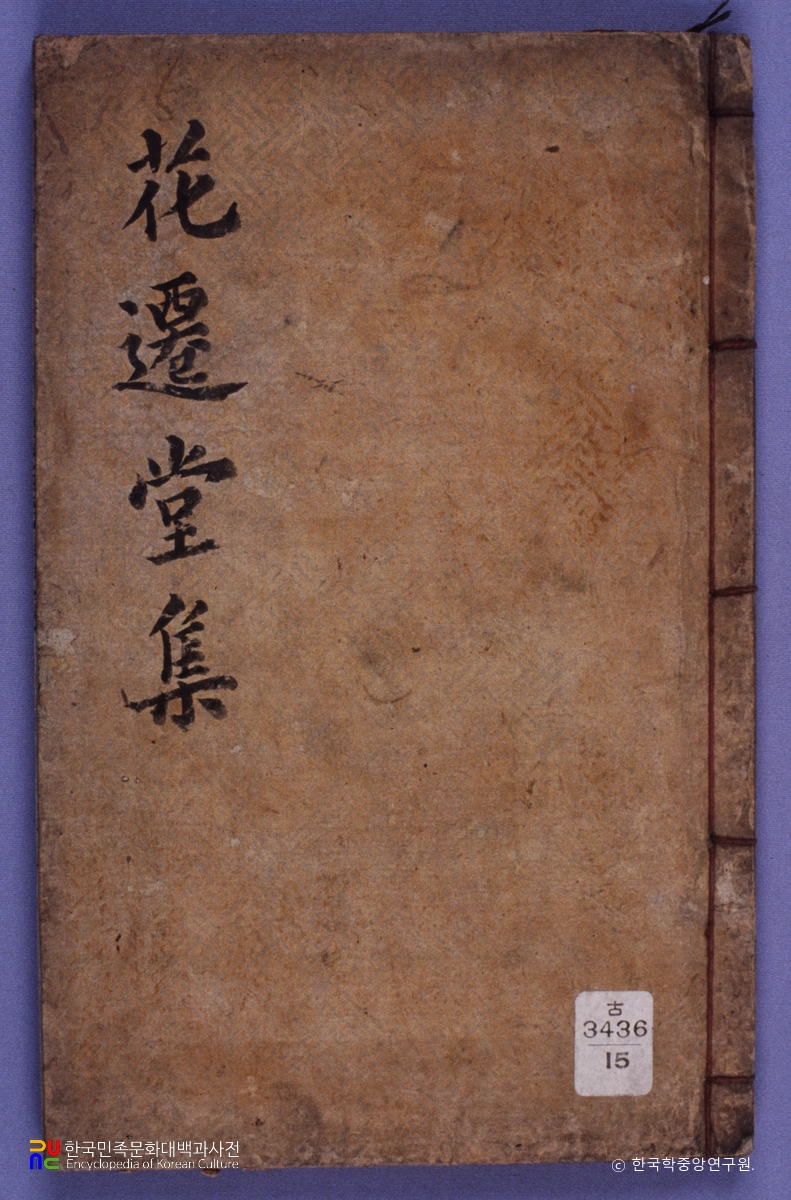 花遷堂集
古
3436
15
한국민족문화대백과사전
Encyclopedia of Korean Culture
ⓒ 한국학중앙연구원.